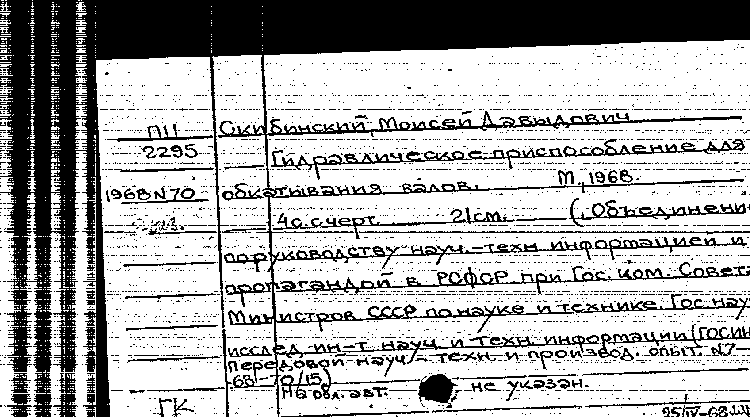 П11 Скибинский, Моисей Давыдович
2295 Гидравлическое приспособление для
1968 N 70 обкатывания валов. М., 1968.
4 с. с черт. 21 см. (Объединени
по руководству науч.-техн. информацией и
пропагандой в РСФСР при Гос. ком. Совета
Министров СССР по науке и технике. Гос. нау
исслед. ин-т науч. и техн. информации (ГОСИН
Передовой науч.-техн. и производ. опыт. N7-
68-70/15)
На обл. авт. не указан.
ГК